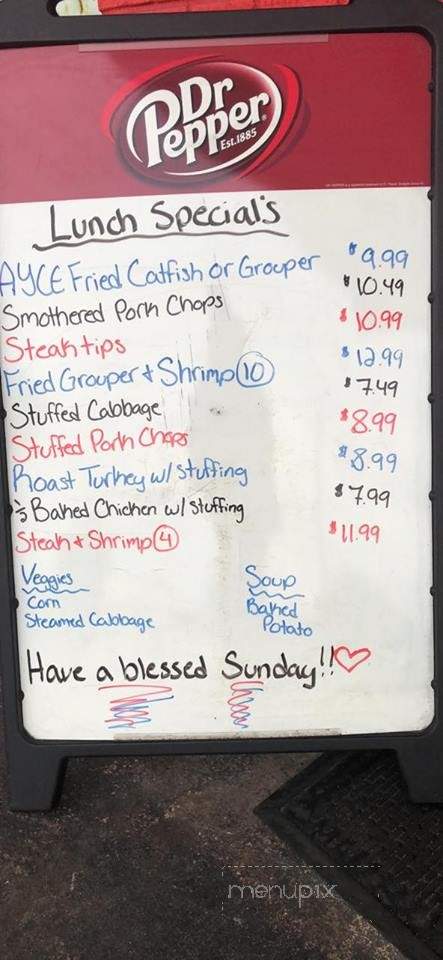 Dr Pepper
Est.1885
Lunch Special's
AYCE Fried Catfish or Grouper $9.99
Smothered Pork Chops $10.49
Steak tips $10.99
Fried Grouper + Shrimp 10 $12.99
Stuffed Cabbage $7.49
Stuffed Pork Chops $8.99
Roast Turkey w/ Stuffing $8.99
½ Baked Chicken w/ Stuffing $7.99
Steak + Shrimp 4 $11.99
Veggies
Corn
Steamed Cabbage
Soup
Baked
Potato
Have a blessed Sunday!!
menupix